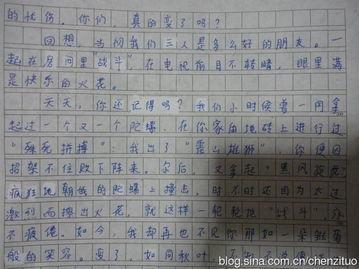 的忧伤。你们，真的变了吗？
回想，当初我们三人是多么好的朋友。一
起在房间里“战斗”，在电视前目不转睛，眼里满
是快乐的火花。
天天，你还记得吗？我们小时候曾一同拿
起过一个又一个陀螺，在你家的地砖上进行过
“殊死拼搏”：我出了“雷么雄狮”，你便因
招架不住败下阵来。尔后，又拿起“黑风
疯狂地朝我的陀螺上撞击，时不时还因为太过
激烈而擦出火花。就这样一轮轮地“战斗”，
不疲倦。如今，我却再也不见你那如一朵
般的笑容。变了，如同秋叶
blog.sina.com.cn/chenzituo